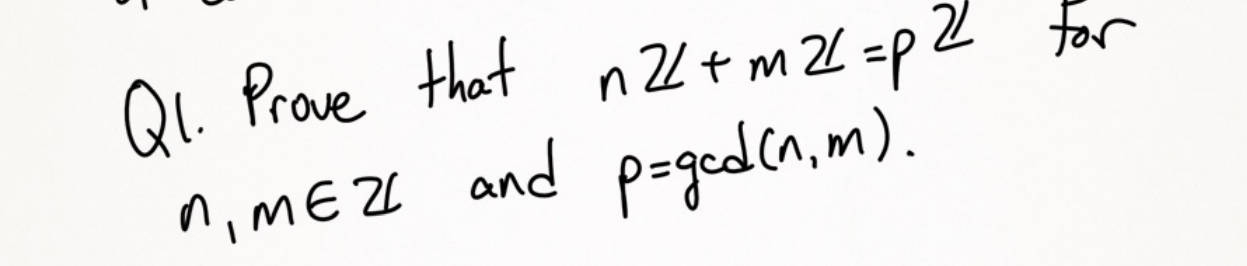 Q1. Prove that nℤ + mℤ = pℤ for
n, m ∈ ℤ and p = gcd(n, m).